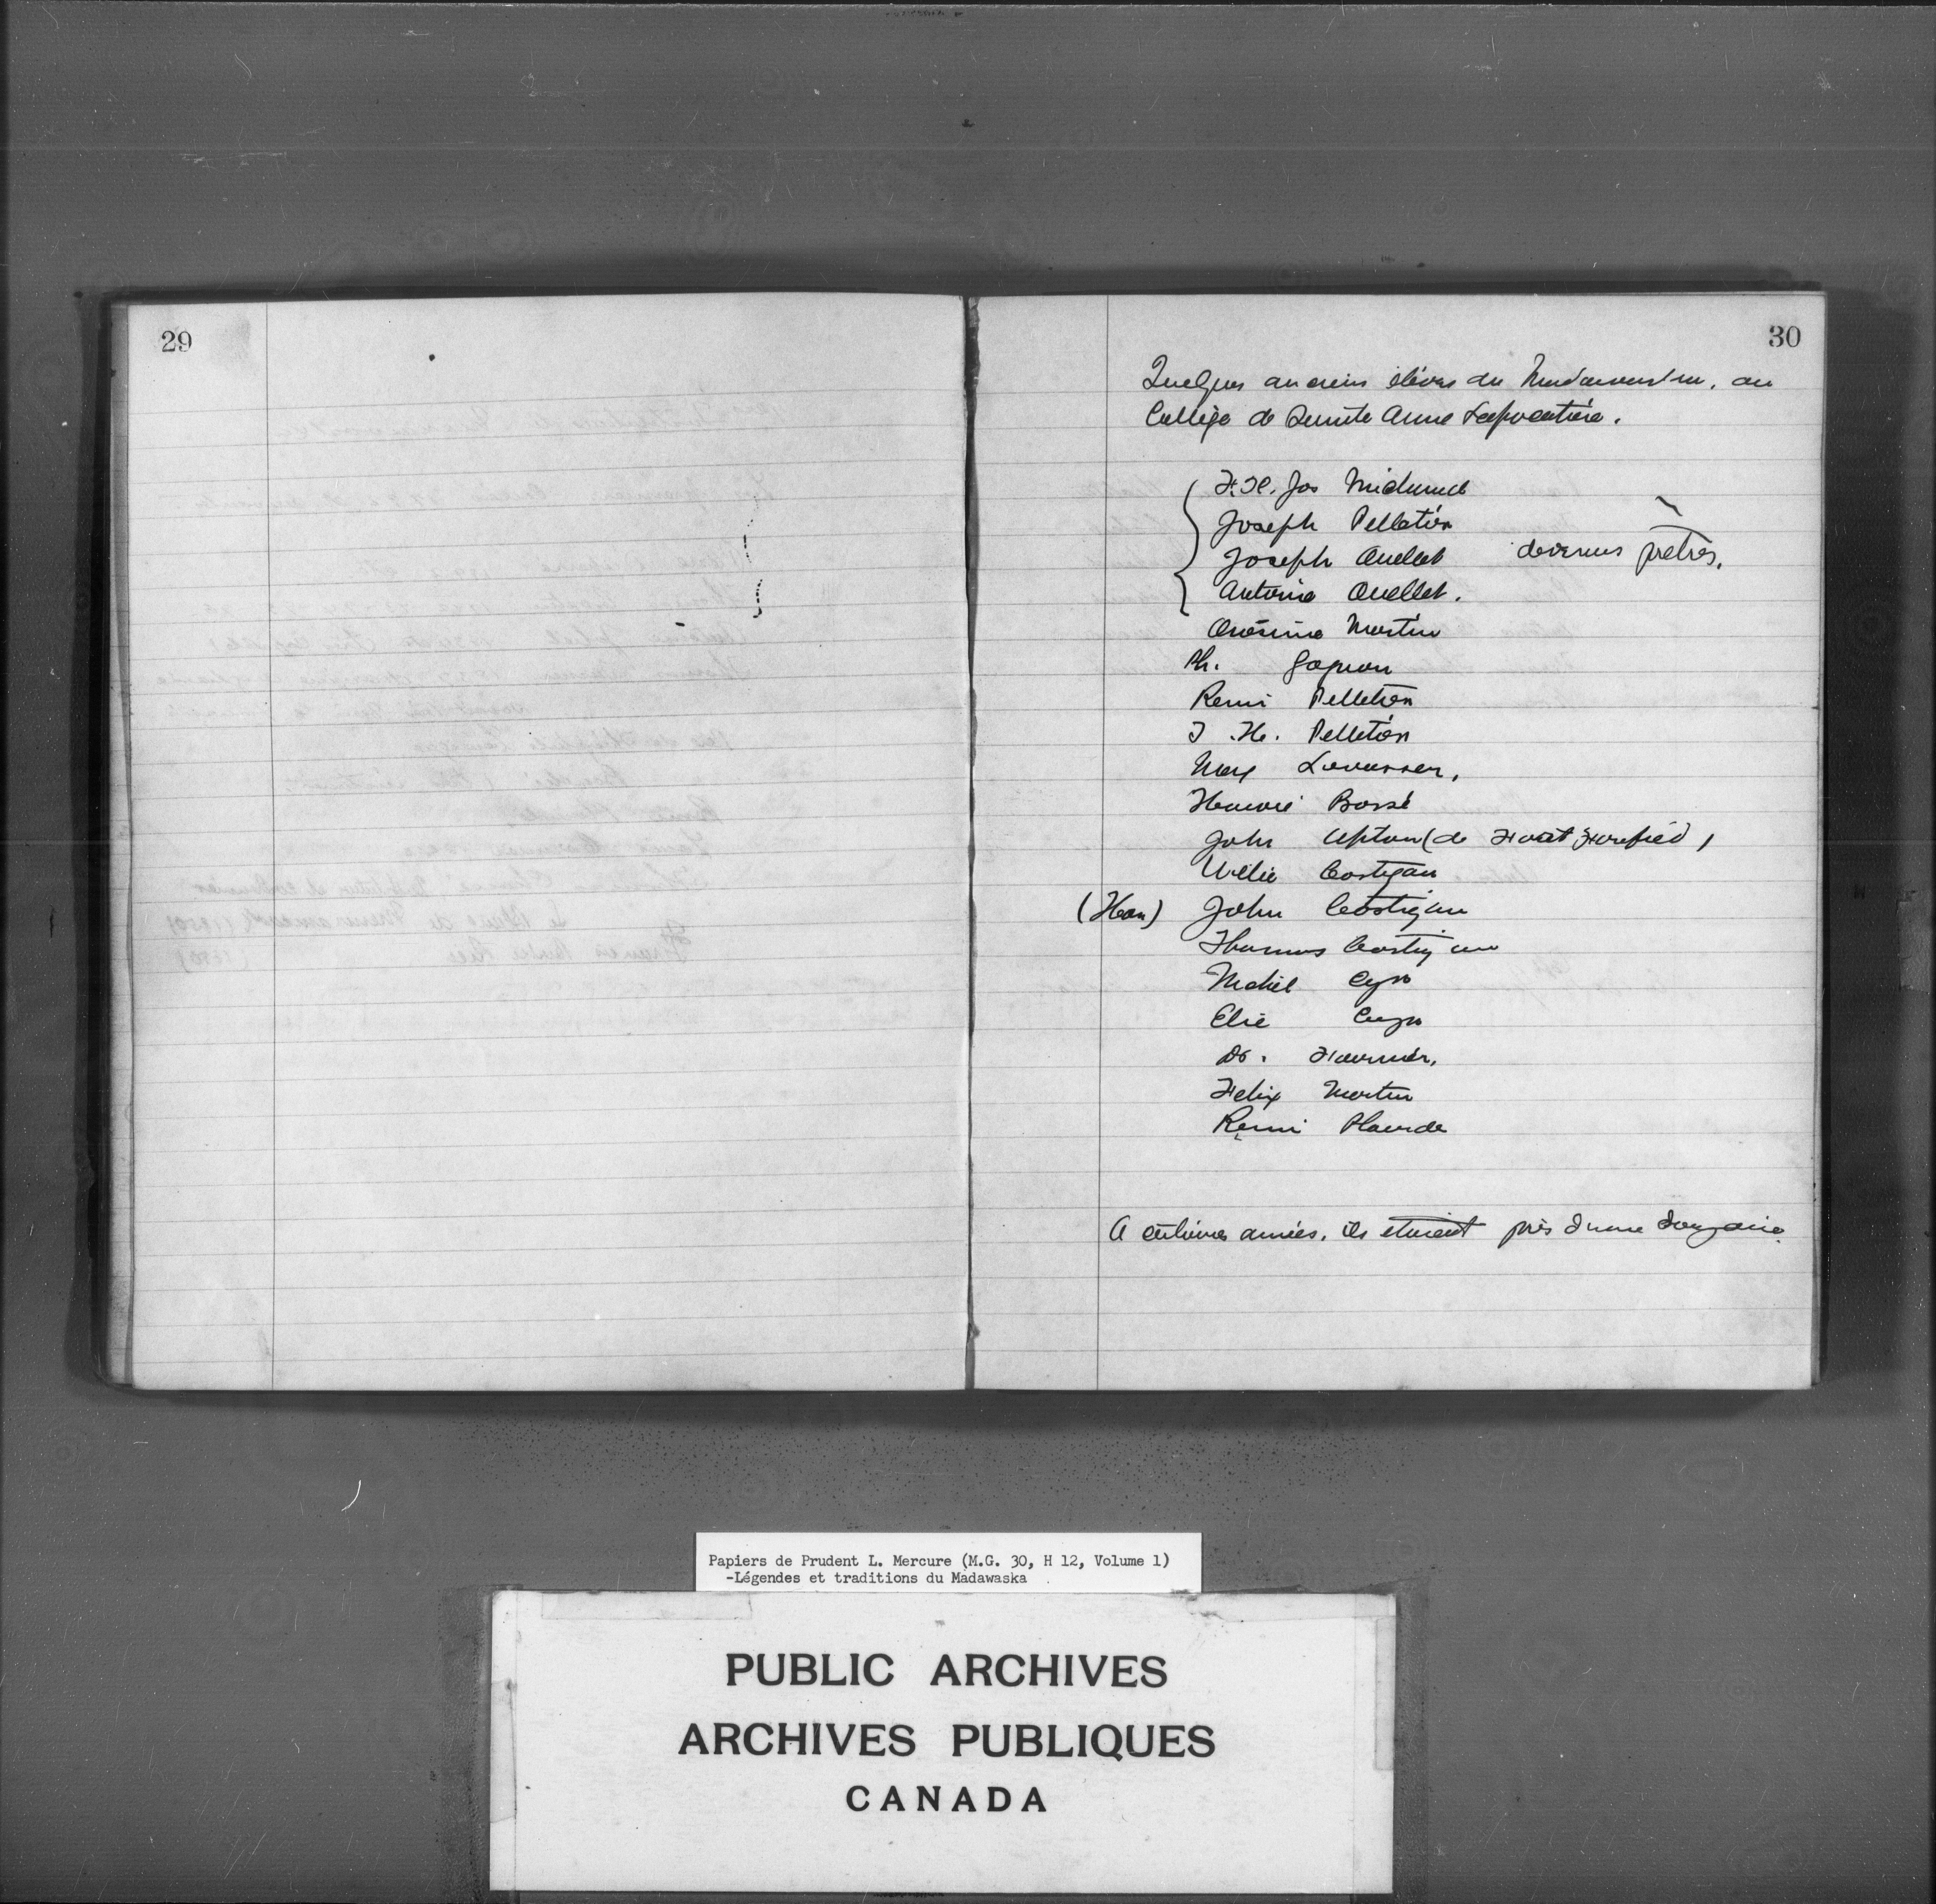 29
30
Quelques anciens élèves du Madawaska, au
Collège de Sainte Anne Lapocatière.
F. X. Jos Michaud
Joseph Pelletier
Joseph Ouellet devenus prêtres.
Antoine Ouellet.
Onésime Martin
Ph. Gagnon
Remi Pelletier
J. H. Pelletier
Max Levasseur,
Honoré Bossé
John Upton (de Fort Fairfield)
Willie Costigan
(Hon) John Costigan
Thomas Costigan
Michel Cyr
Elie Cyr
Dr. Fournier,
Felix Martin
Remi Plourde
A certaines années, ils étaient près d'une douzaine.
Papiers de Prudent L. Mercure (M.G. 30, H 12, Volume 1)
-Légendes et traditions du Madawaska
PUBLIC ARCHIVES
ARCHIVES PUBLIQUES
CANADA